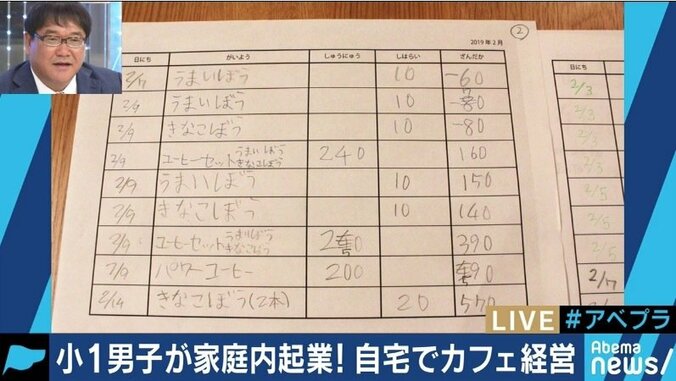 ②
2019年2月
日にち がいよう しゅうにゅう しはらい ざんだか 日にち
2/7 うまいぼう 10 -60 2/3
2/9 うまいぼう 10 2/3
2/9 きなこぼう 10 -80 2/3
2/9 コーヒーセット うまいぼう きなこぼう 240 160 2/3
2/9 うまいぼう 10 150 2/5
2/9 きなこぼう 10 140 2/5
2/9 コーヒーセット うまいぼう きなこぼう 390 2/5
2/9 パワーコーヒー 200 2/7
2/14 きなこぼう(2本) 20 570
LIVE #アベプラ
小1男子が家庭内起業! 自宅でカフェ経営
Abema news!